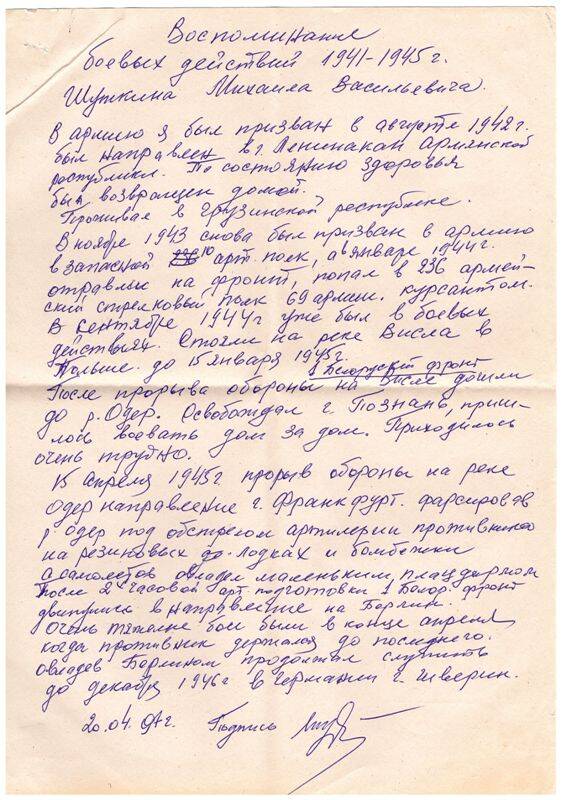 Воспоминание
боевых действий 1941-1945г.
Шушкина Михаила Васильевича.
В армию я был призван в августе 1942г.
был направлен в г. Ленинакан Армянской
республики. По состоянию здоровья
был возвращен домой.
Проживае в Грузинской республике.
В ноябре 1943 снова был призван в армию
в запасной 10 арт. полк, а в январе 1944г.
отравлен на фронт, попал в 236 армей-
ский стрелковый полк 69 армии. курсантом.
В сентябре 1944г уже был в боевых
действиях. Стояли на реке Висла в
Польше. до 15 января 1945г.
1 Белоруский фронт
После прорыва обороны на Висле дошли
до р. Одер. Освобождал г. Познань, приш-
лось воевать дом за дом. Приходилось
очень трудно.
15 апреля 1945г прорыв обороны на реке
Одер направление г. Франкфурт. фарсировав
р. Одер под обстрелом артилерии противника
на резиновых лодках и бомбежки
с самолетов овладел маленьким плацдармом
После 2х часовой арт. подготовки 1 Белор. фронт
двинулись в направление на Берлин.
Очень тяжелые бои были в конце апреля
когда противник держался до последнего.
овладев Берлином продолжал служить
до декабря 1946г в Германии г. Шверин.
20.04.07г. Подпись